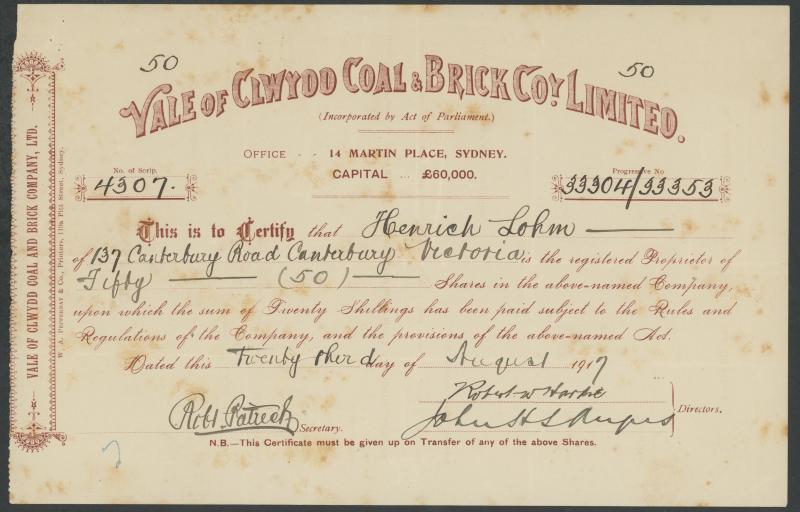 50
50
VALE OF CLWYDD COAL & BRICK COY. LIMITED.
(Incorporated by Act of Parliament.)
OFFICE - - 14 MARTIN PLACE, SYDNEY.
CAPITAL ... £60,000.
No. of Scrip.
4307.
Progressive No
33304/33353
This is to Certify that Henrich Lohm
of 137 Canterbury Road Canterbury Victoria is the registered Proprietor of
Fifty (50) Shares in the above-named Company,
upon which the sum of Twenty Shillings has been paid subject to the Rules and
Regulations of the Company, and the provisions of the above-named Act.
Dated this Twenty third day of August 1917
Robert W
Robt Patrick Secretary.
John H S
Directors.
N.B.—This Certificate must be given up on Transfer of any of the above Shares.
VALE OF CLWYDD COAL AND BRICK COMPANY, LTD.
W. A. & Co., Printers, Pitt Street, Sydney.